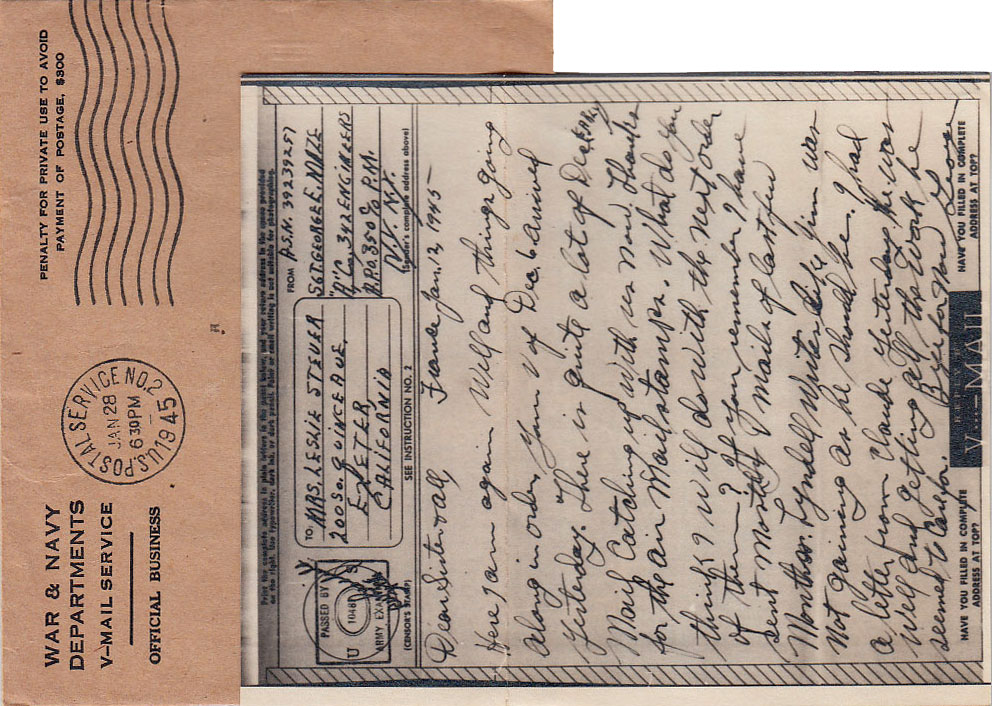 WAR & NAVY
DEPARTMENTS
V-MAIL SERVICE
OFFICIAL BUSINESS
U.S. POSTAL SERVICE NO. 2
JAN 28
6 30 PM
1945
PENALTY FOR PRIVATE USE TO AVOID
PAYMENT OF POSTAGE, $300
Print the complete address in plain letters in the panel below, and your return address in the space provided
PASSED BY
U
ARMY EXAMINER
(CENSOR'S STAMP)
TO MRS. LESLIE STEVER
200 So. QUINCE AVE,
EXETER,
CALIFORNIA
SEE INSTRUCTION NO. 2
FROM A.S.N. 39239257
SGT. GEORGE E. MAZE
"C" 342 ENGINEERS
A.P.O. 350 % P.M.
N.Y. N.Y.
(Sender's complete address above)
Dear Sister & all France Jan. 12, 1945
Here I am again Well and things going
along in order, Your V of Dec 6 arrived
Yesterday. There is quite a lot of Dec
Mail Catching up with us now. Thanks
for the air Mail stamps. What do you
think? I will do with the next order
of them? If you remember I have
sent mostly V Mail of last few
Months. Lyndell writes like Jim was
Not gaining as he should be. I had
a letter from Claude Yesterday He was
Well and getting all the Work he
seemed to Care for. Bye for Now Love
HAVE YOU FILLED IN COMPLETE
ADDRESS AT TOP?
V-MAIL
HAVE YOU FILLED IN COMPLETE
ADDRESS AT TOP?